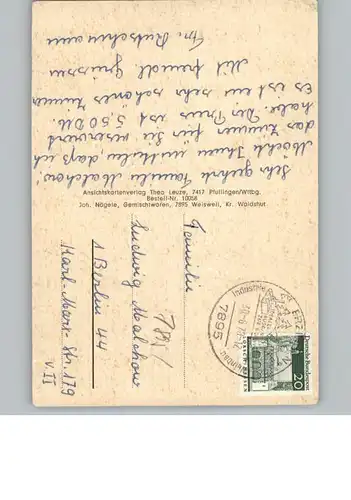 Sehr geehrte Familie Malchow!
Möchte Ihnen mitteilen daß ich
das Zimmer für Sie reserviert
habe. Der Preis ist 5,50 DM.
Es ist ein sehr schönes Zimmer
Mit freundl. Grüssen
Fr. Rutschmann
Ansichtskartenverlag Theo Leuze, 7417 Pfullingen/Wttbg.
Bestell-Nr. 10058
Joh. Nägele, Gemischtwaren, 7895 Weisweil, Kr. Waldshut
Familie
Ludwig Malchow
1 Berlin 44
Karl-Marx-Str. 179
v. II
7895
Deutsche Bundespost
20